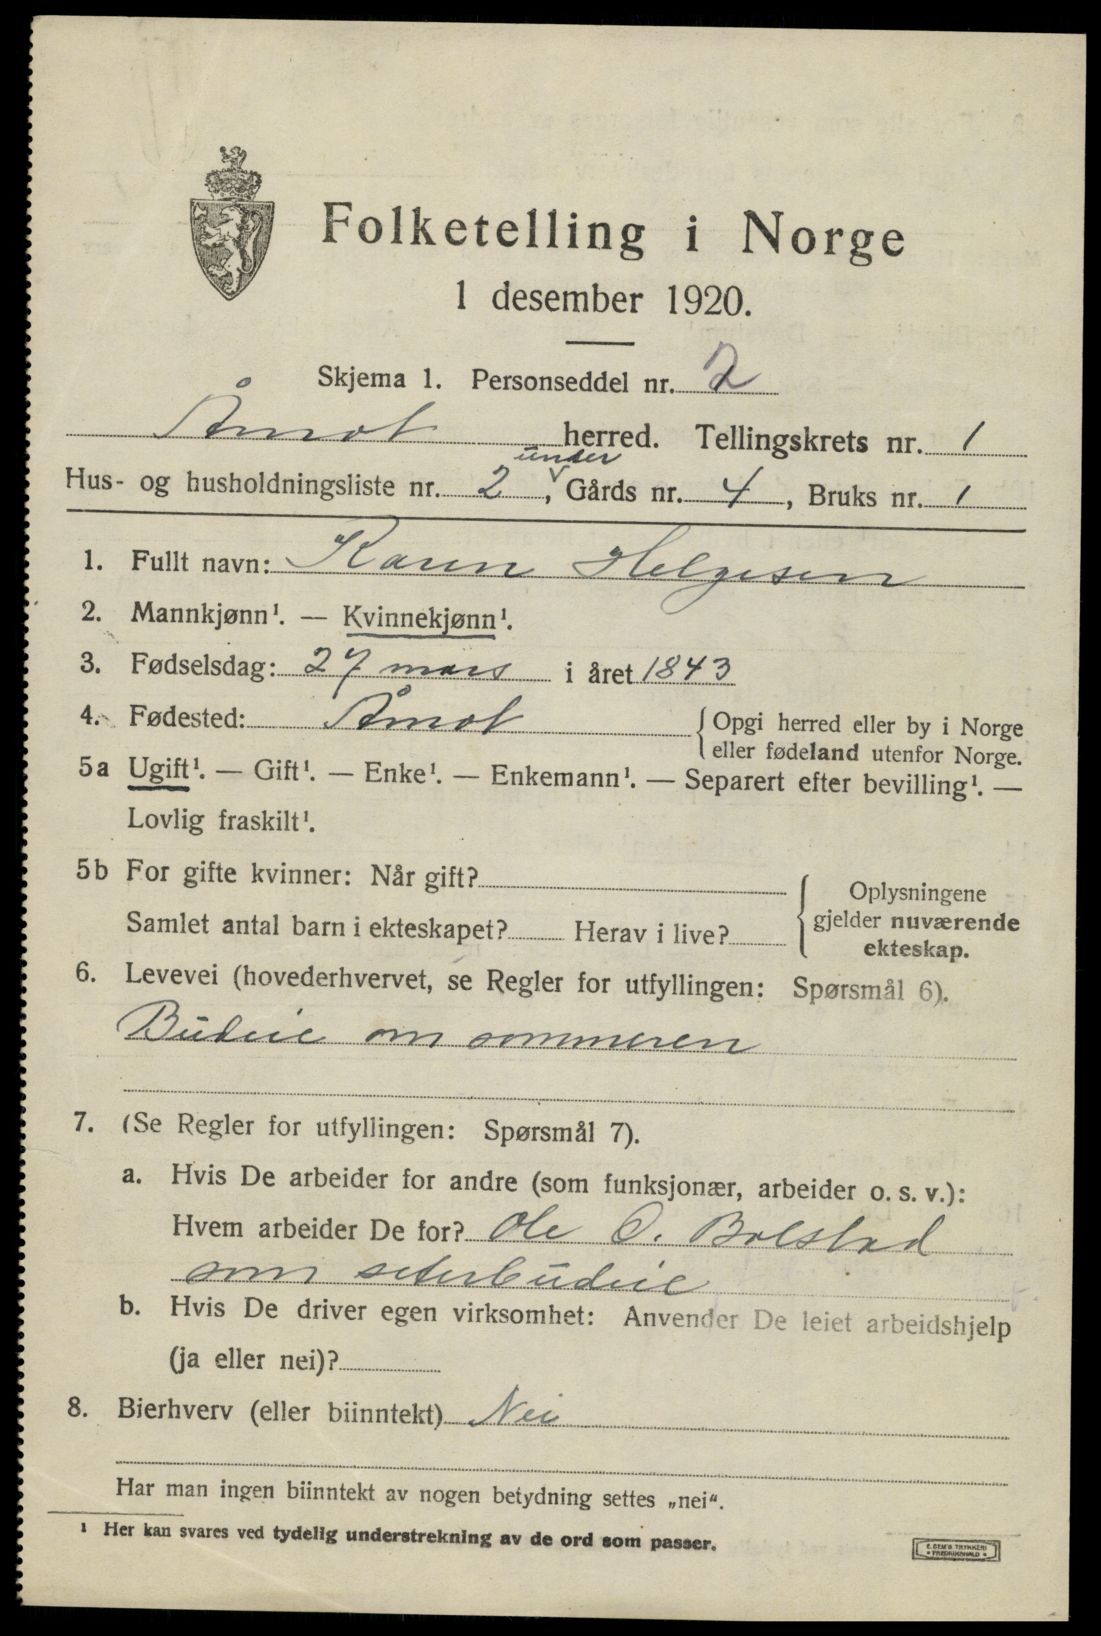 Folketelling i Norge
1 desember 1920.
Skjema 1. Personseddel nr. 2
Åmot herred. Tellingskrets nr. 1
under
Hus- og husholdningsliste nr. 2, Gårds nr. 4, Bruks nr. 1
1. Fullt navn: Karen Helgesen
2. Mannkjønn¹. — Kvinnekjønn¹.
3. Fødselsdag: 27 mars i året 1843
4. Fødested: Åmot {Opgi herred eller by i Norge
eller fødeland utenfor Norge.
5a Ugift¹. — Gift¹. — Enke¹. — Enkemann¹. — Separert efter bevilling¹. —
Lovlig fraskilt¹.
5b For gifte kvinner: Når gift?
Samlet antal barn i ekteskapet? Herav i live?
Oplysningene
gjelder nuværende
ekteskap.
6. Levevei (hovederhvervet, se Regler for utfyllingen: Spørsmål 6).
Budeie om sommeren
7. (Se Regler for utfyllingen: Spørsmål 7).
a. Hvis De arbeider for andre (som funksjonær, arbeider o. s. v.):
Hvem arbeider De for? Ole O. Bolstad
som seterbudeie
b. Hvis De driver egen virksomhet: Anvender De leiet arbeidshjelp
(ja eller nei)?
8. Bierhverv (eller biinntekt) Nei
Har man ingen biinntekt av nogen betydning settes „nei“.
¹ Her kan svares ved tydelig understrekning av de ord som passer.
E. SEM'S TRYKKERI
FREDRIKSHALD